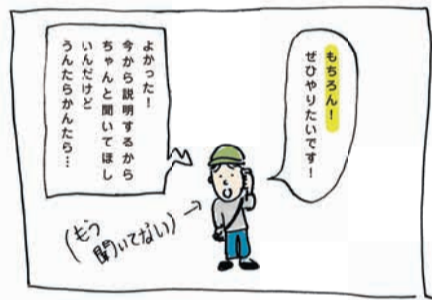 もちろん！
ぜひやりたいです！
よかった！
今から説明するから
ちゃんと聞いてほし
いんだけど
うんたらかんたら…
(もう
聞いてない)